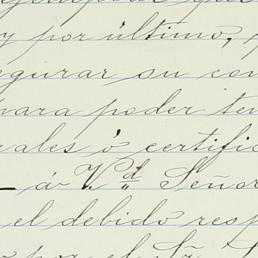 y por último,
egurar su con
para poder ten
rales ó certific
á V.d Señor
el debido resp
por el Sr.